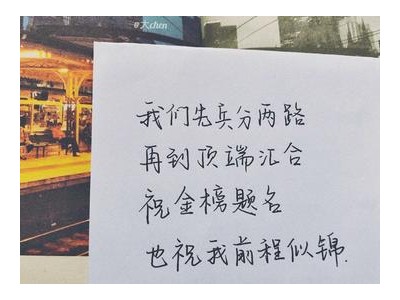 @天chen
我们先兵分两路
再到顶端汇合
祝金榜题名
也祝我前程似锦.